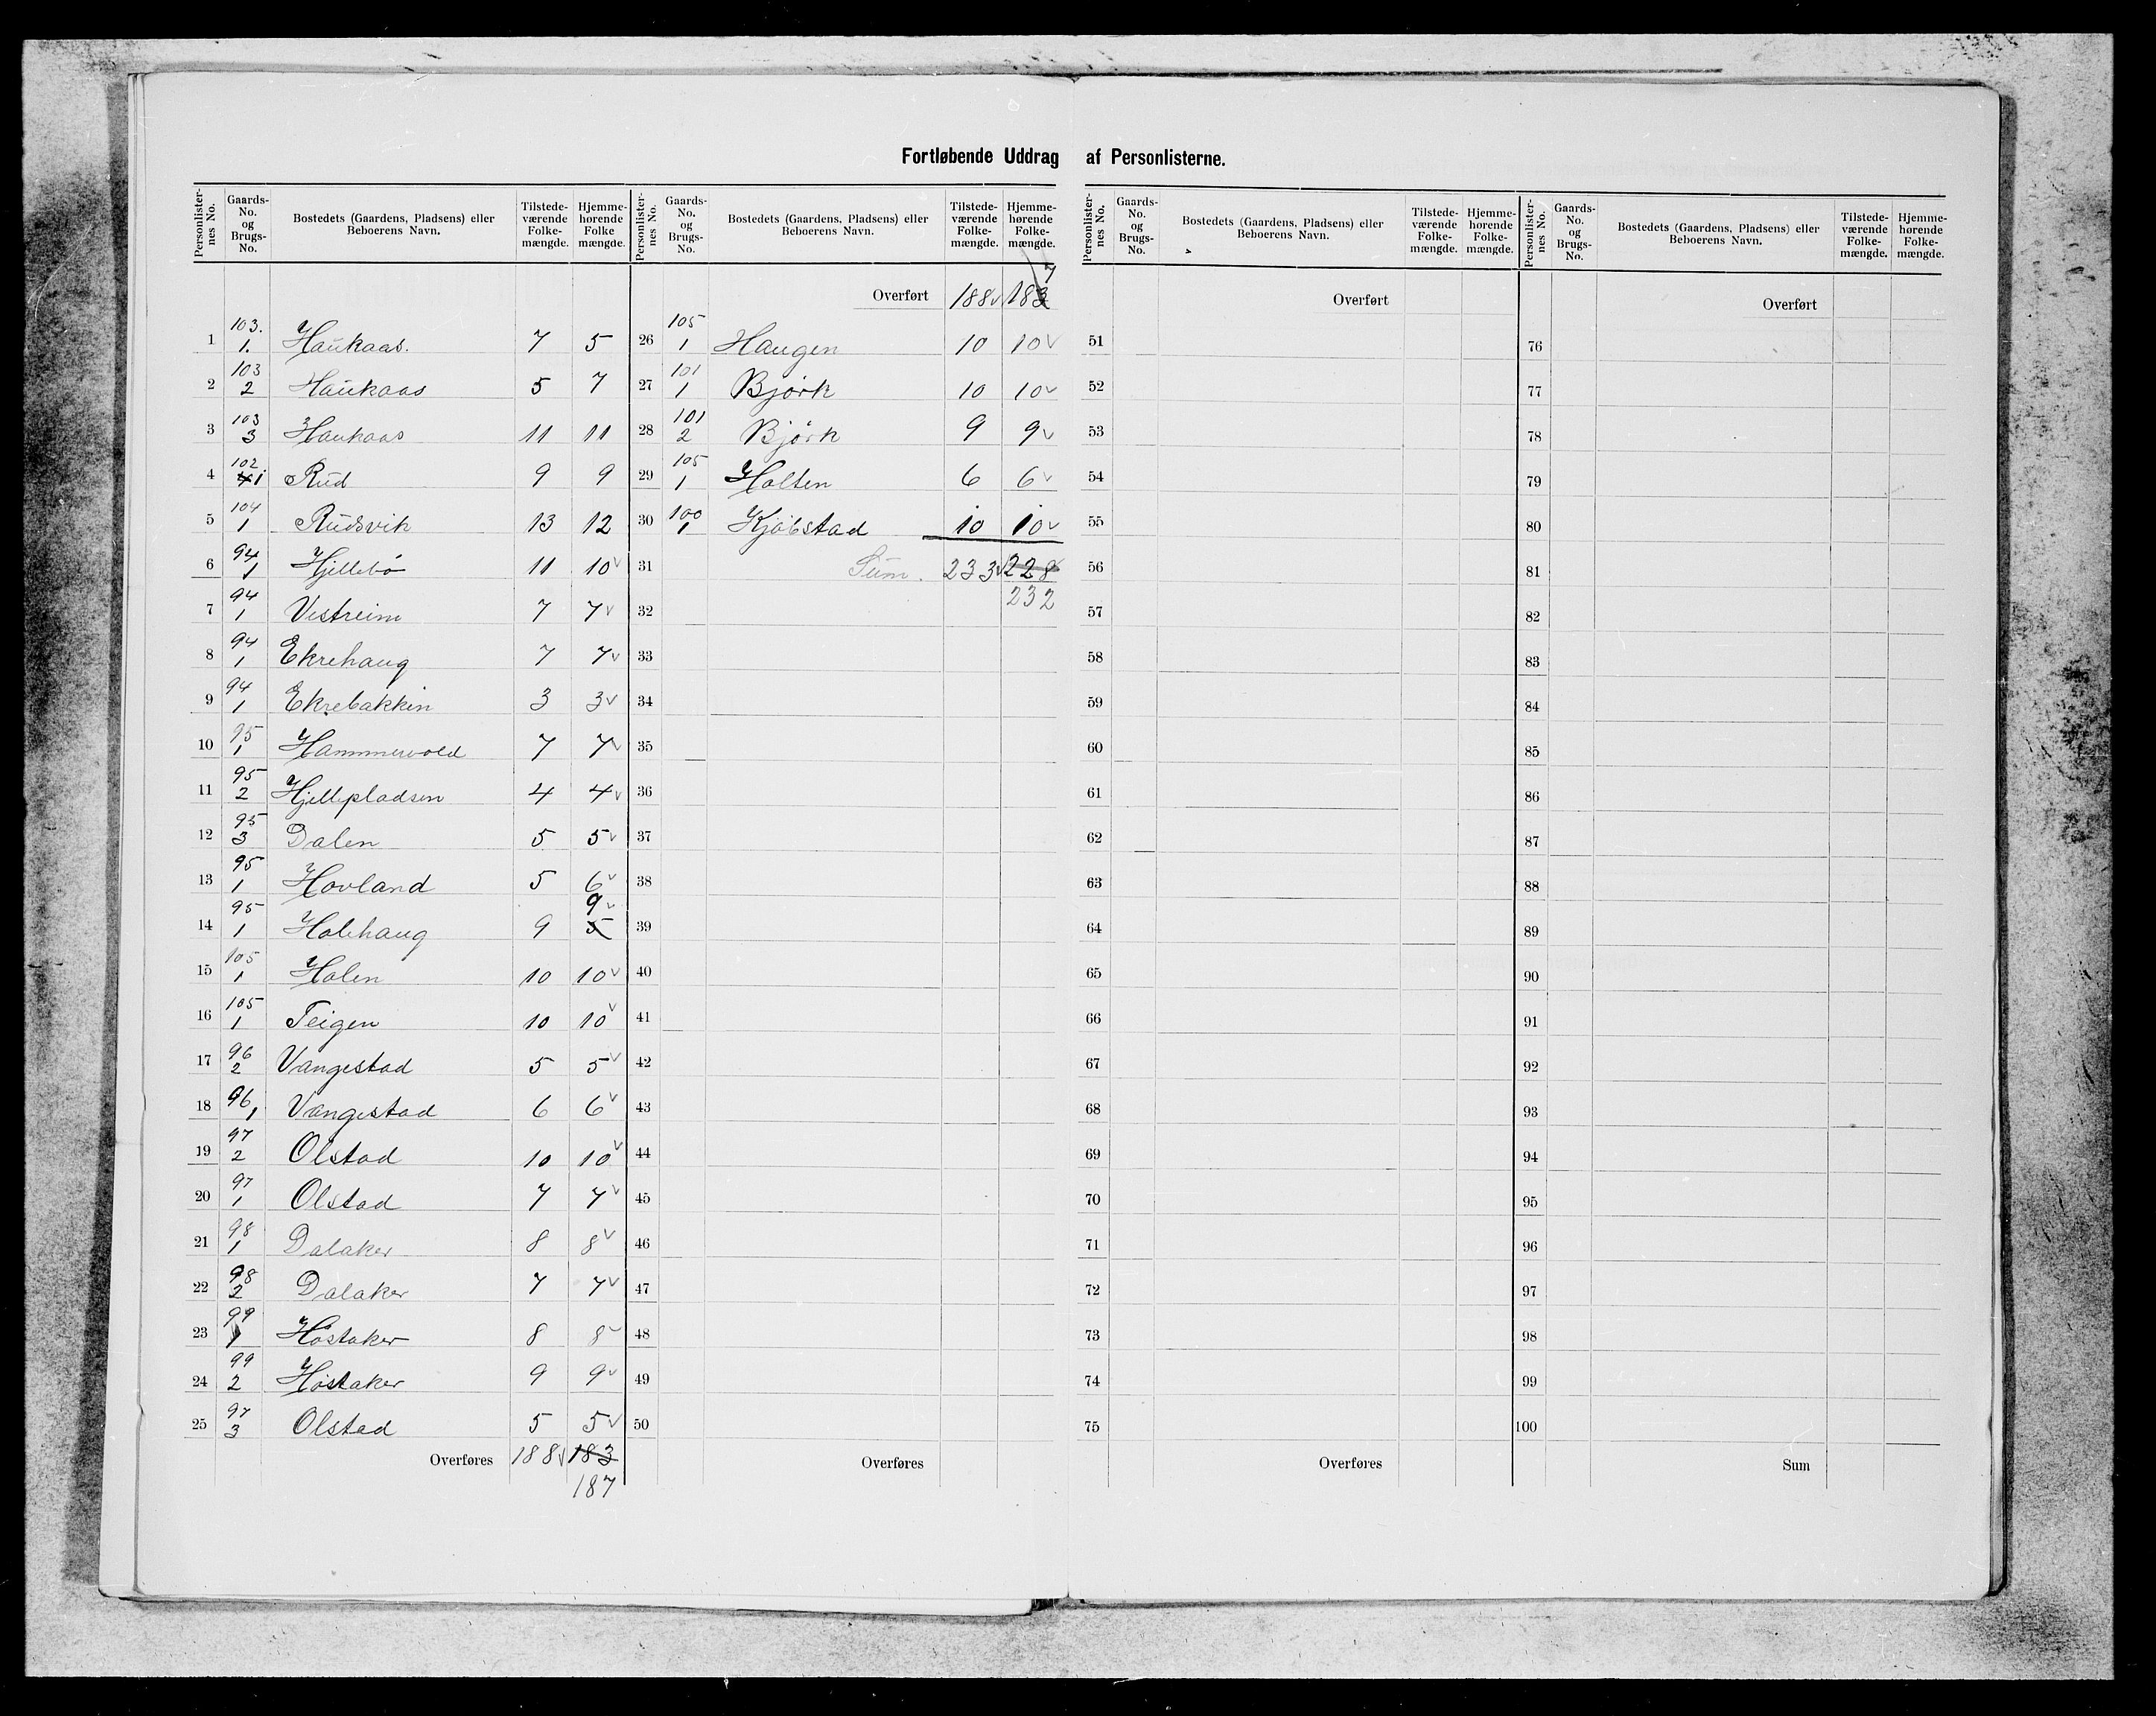 Fortløbende Uddrag af Personlisterne.
Personlister-nes No. Gaards-No. og Brugs-No. Bostedets (Gaardens, Pladsens) eller Beboerens Navn. Tilstede-værende Folke-mængde. Hjemme-hørende Folke mængde.
1 103. 1. Haukaas. 7 5
2 103 2 Haukaas 5 7
3 103 3 Haukaas 11 11
4 102 4 1 Rud 9 9
5 104 1 Rudsvik 13 12
6 94 1 Hjellebø 11 10 v
7 94 1 Vestreim 7 7 v
8 94 1 Ekrehaug 7 7 v
9 94 1 Ekrebakken 3 3 v
10 95 1 Hammervold 7 7 v
11 95 2 Hjellepladsen 4 4 v
12 95 3 Dalen 5 5 v
13 95 1 Hovland 5 6 v
14 95 1 Holehaug 9 5 9 v
15 105 1 Holen 10 10 v
16 105 1 Teigen 10 10 v
17 96 2 Vangestad 5 5 v
18 96 1 Vangestad 6 6 v
19 97 2 Olstad 10 10 v
20 97 1 Olstad 7 7 v
21 98 1 Dalaker 8 8 v
22 98 2 Dalaker 7 7 v
23 99 1 Høstaker 8 8 v
24 99 2 Høstaker 9 9 v
25 97 3 Olstad 5 5 v
Overføres 188 v 183
187
Personlister-nes No. Gaards-No. og Brugs-No. Bostedets (Gaardens, Pladsens) eller Beboerens Navn. Tilstede-værende Folke-mængde. Hjemme-hørende Folke-mængde.
Overført 188 v 183 7
26 105 1 Haugen 10 10 v
27 101 1 Bjørk 10 10 v
28 101 2 Bjørk 9 9 v
29 105 1 Holten 6 6 v
30 100 1 Kjøbstad 10 10 v
31 Sum. 233 v 228
32 232
33
34
35
36
37
38
39
40
41
42
43
44
45
46
47
48
49
50
Overføres
Personlister-nes No. Gaards-No. og Brugs-No. Bostedets (Gaardens, Pladsens) eller Beboerens Navn. Tilstede-værende Folke-mængde. Hjemme-hørende Folke-mængde.
Overført
51
52
53
54
55
56
57
58
59
60
61
62
63
64
65
66
67
68
69
70
71
72
73
74
75
Overføres
Personlister-nes No. Gaards-No. og Brugs-No. Bostedets (Gaardens, Pladsens) eller Beboerens Navn. Tilstede-værende Folke-mængde. Hjemme-hørende Folke-mængde.
Overført
76
77
78
79
80
81
82
83
84
85
86
87
88
89
90
91
92
93
94
95
96
97
98
99
100
Sum